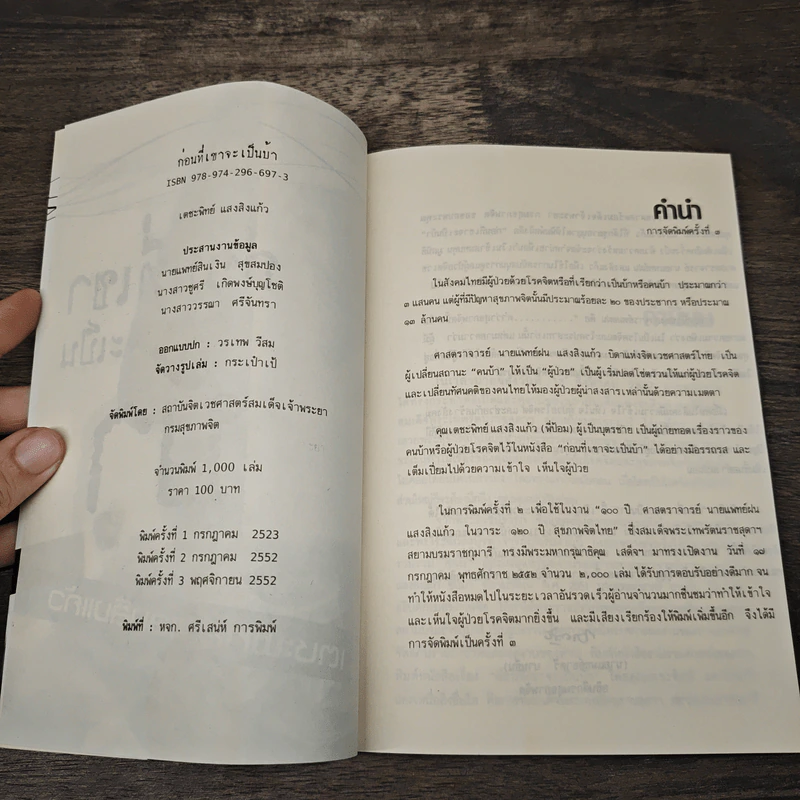 ก่อนที่เขาจะเป็นบ้า
ISBN 978-974-296-697-3
เดชะพิทย์ แสงสิงแก้ว
ประสานงานข้อมูล
นายแพทย์สินเงิน สุขสมปอง
นางสาวชูศรี เกิดพงษ์บุญโชติ
นางสาววรรณา ศรีจันทรา
ออกแบบปก : วรเทพ วีสม
จัดวางรูปเล่ม : กระเป๋าเป้
จัดพิมพ์โดย : สถาบันจิตเวชศาสตร์สมเด็จเจ้าพระยา
กรมสุขภาพจิต
จำนวนพิมพ์ 1,000 เล่ม
ราคา 100 บาท
พิมพ์ครั้งที่ 1 กรกฎาคม 2523
พิมพ์ครั้งที่ 2 กรกฎาคม 2552
พิมพ์ครั้งที่ 3 พฤศจิกายน 2552
พิมพ์ที่ : หจก. ศรีเสน่ห์ การพิมพ์
คำนำ
การจัดพิมพ์ครั้งที่ ๓
ในสังคมไทยมีผู้ป่วยด้วยโรคจิตหรือที่เรียกว่าเป็นบ้าหรือคนบ้า ประมาณกว่า
๓ แสนคน แต่ผู้ที่มีปัญหาสุขภาพจิตนั้นมีประมาณร้อยละ ๒๐ ของประชากร หรือประมาณ
๑๓ ล้านคน
ศาสตราจารย์ นายแพทย์ฝน แสงสิงแก้ว บิดาแห่งจิตเวชศาสตร์ไทย เป็น
ผู้เปลี่ยนสถานะ “คนบ้า” ให้เป็น “ผู้ป่วย” เป็นผู้เริ่มปลดโซ่ตรวนให้แก่ผู้ป่วยโรคจิต
และเปลี่ยนทัศนคติของคนไทยให้มองผู้ป่วยผู้น่าสงสารเหล่านั้นด้วยความเมตตา
คุณเดชะพิทย์ แสงสิงแก้ว (พี่ป้อม) ผู้เป็นบุตรชาย เป็นผู้ถ่ายทอดเรื่องราวของ
คนบ้าหรือผู้ป่วยโรคจิตไว้ในหนังสือ “ก่อนที่เขาจะเป็นบ้า” ได้อย่างมีอรรถรส และ
เต็มเปี่ยมไปด้วยความเข้าใจ เห็นใจผู้ป่วย
ในการพิมพ์ครั้งที่ ๒ เพื่อใช้ในงาน “๑๐๐ ปี ศาสตราจารย์ นายแพทย์ฝน
แสงสิงแก้ว ในวาระ ๑๒๐ ปี สุขภาพจิตไทย” ซึ่งสมเด็จพระเทพรัตนราชสุดาฯ
สยามบรมราชกุมารี ทรงมีพระมหากรุณาธิคุณ เสด็จฯ มาทรงเปิดงาน วันที่ ๑๗
กรกฎาคม พุทธศักราช ๒๕๕๒ จำนวน ๒,๐๐๐ เล่ม ได้รับการตอบรับอย่างดีมาก จน
ทำให้หนังสือหมดไปในระยะเวลาอันรวดเร็วผู้อ่านจำนวนมากชื่นชมว่าทำให้เข้าใจ
และเห็นใจผู้ป่วยโรคจิตมากยิ่งขึ้น และมีเสียงเรียกร้องให้พิมพ์เพิ่มขึ้นอีก จึงได้มี
การจัดพิมพ์เป็นครั้งที่ ๓